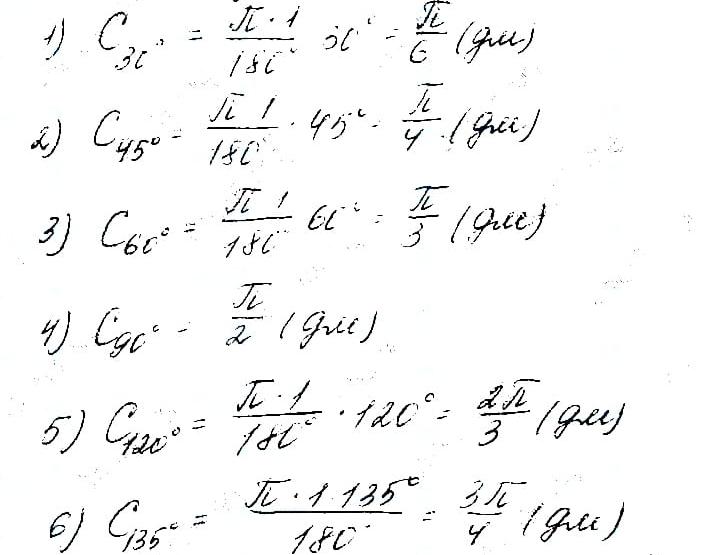 1) C₃₀° = π·1/180° 30° = π/6 (дм)
2) C₄₅° = π 1/180° · 45° = π/4 (дм)
3) C₆₀° = π 1/180° 60° = π/3 (дм)
4) C₉₀° = π/2 (дм)
5) C₁₂₀° = π·1/180° · 120° = 2π/3 (дм)
6) C₁₃₅° = π·1·135°/180° = 3π/4 (дм)